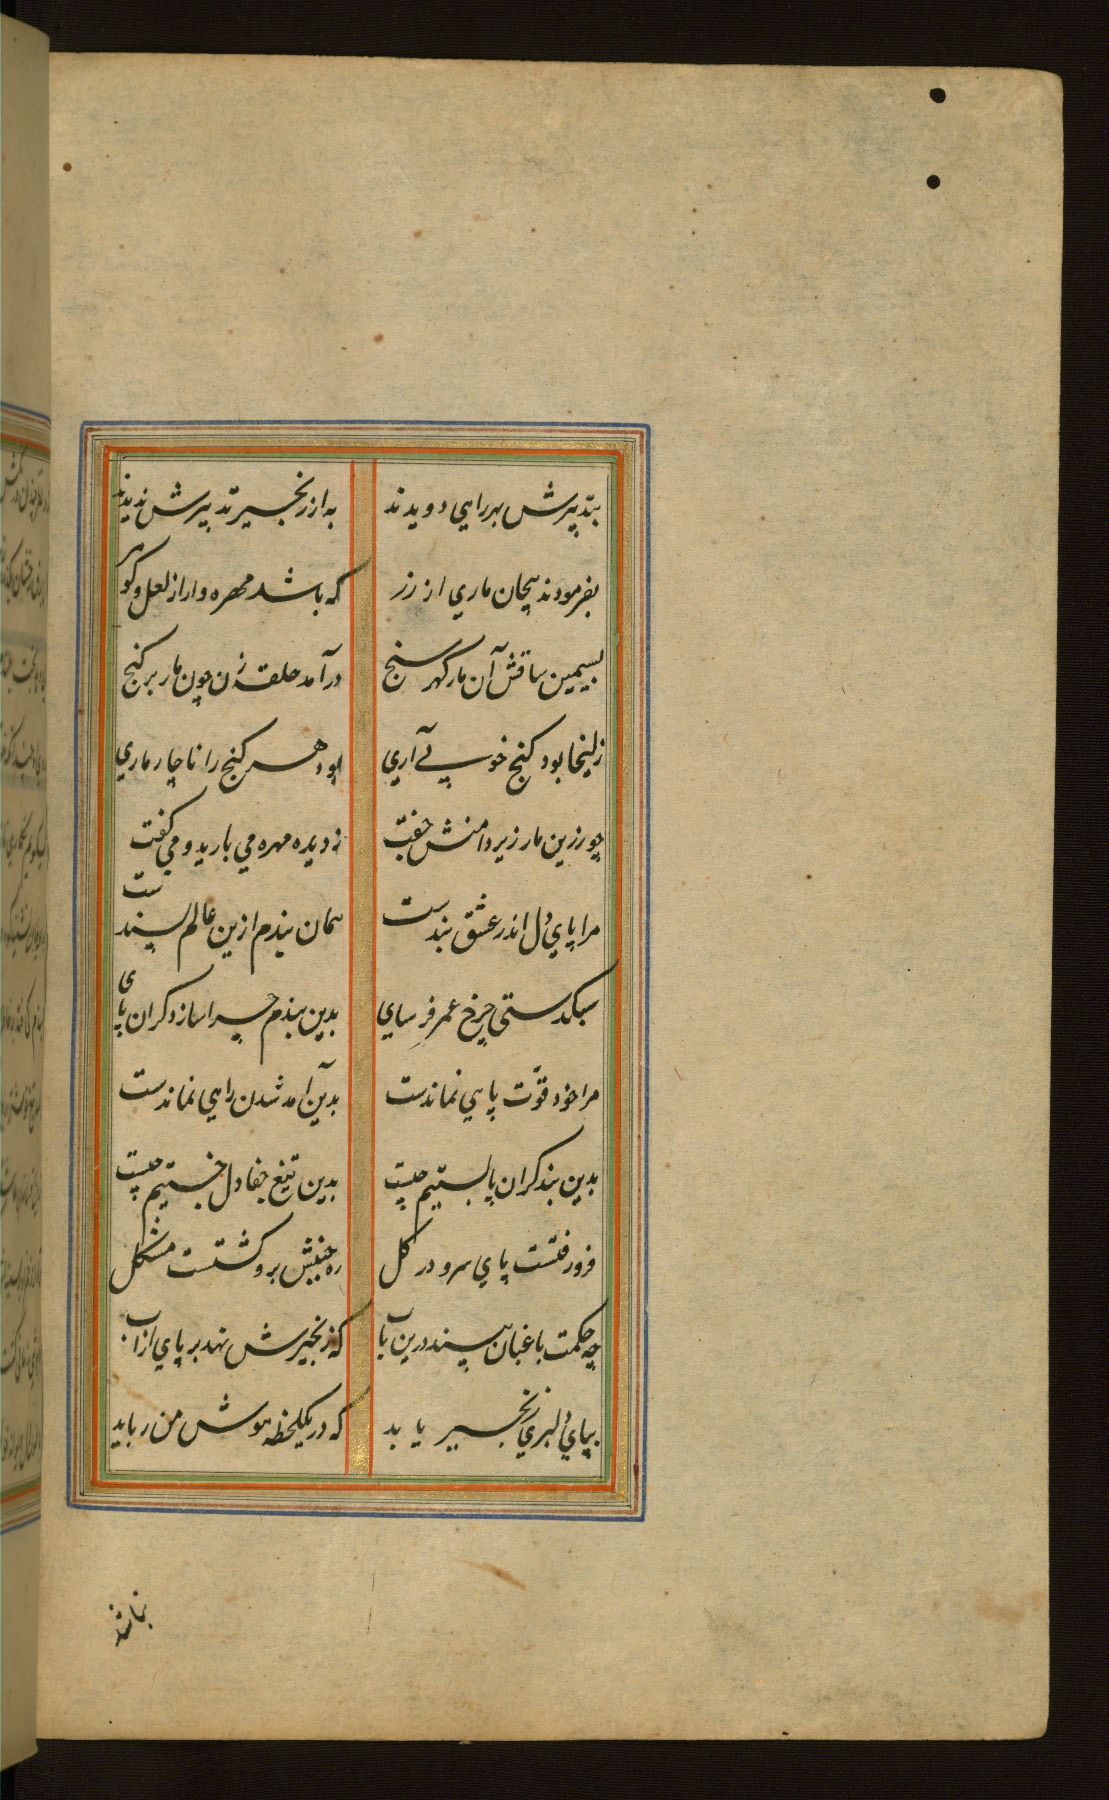 بتدبیرش بهر راهی دویدند به از زنجیر تدبیرش ندیدند
بفرمودند پیچان ماری از زر که باشد مهره دار از لعل و گوهر
بسیمین ساقش آن مار گهر سنج درآمد حلقه زن چون مار بر گنج
زلیخا بود گنج خوبی آری بود هر گنج را ناچار ماری
چو زرین مار زیر دامنش خفت ز دیده مهره می بارید و می گفت
مرا پای دل اندر عشق بندست همان بندم ازین عالم پسندست
سبکدستی چرخ عمر فرسای بدین بندم چرا سازد گران پای
مرا خود قوّت پایی نماندست بدین آمد شدن راهی نماندست
بدین بند گران پا بستنم چیست بدین تیغ جفا دل خستنم چیست
فرو رفتست پای سرو در گل ره جنبش برو گشتست مشکل
چه حکمت باغبان بیند درین باب که زنجیرش نهد بر پای از آب
بپای دلبری زنجیر باید که در یکلحظه هوش من رباید
نباشد